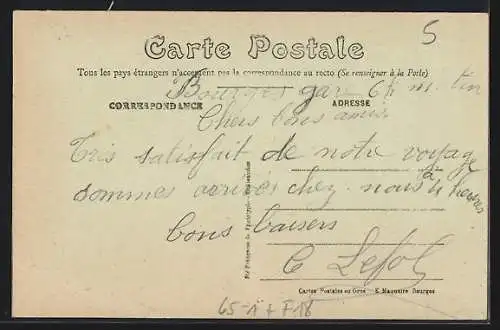 5
Carte Postale
Tous les pays étrangers n'acceptent pas la correspondance au recto (Se renseigner à la Poste)
Bourges gare 6h m. tin
CORRESPONDANCE
ADRESSE
Chers bons amis
Tris satisfait de notre voyage
sommes arrivés chez nous à heures
bons baisers
C Lefol
Cartes Postales en Gros - E. Maquaire Bourges
65-1 + F18